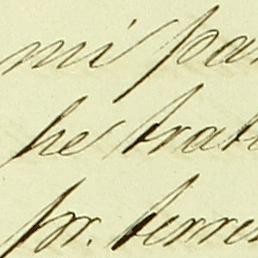 mi par
he trat
pr. terre